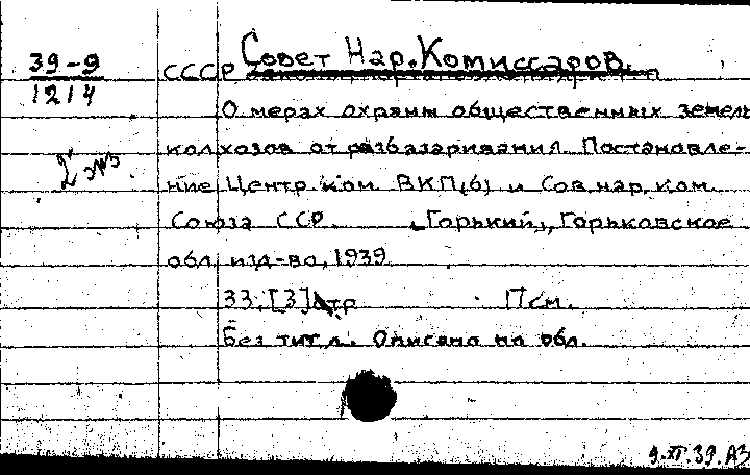 39-9
1214
2 экз.
СССР Совет Нар. Комиссаров.
О мерах охраны общественных земель
колхозов от разбазаривания. Постановле-
ние Центр. ком. ВКП(б) и Сов. нар. ком.
Союза ССР. „Горький“, Горьковское
обл. изд-во, 1939
33, [3] стр. Псм.
Без тит. л. Описано по обл.
9.XI.39.АЗ